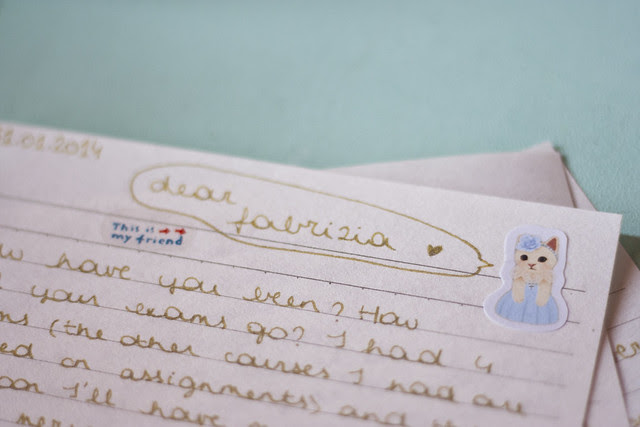 1.01.2014
dear
fabrizia
This is
my friend
have you been? How
your exams go? I had 4
(the other courses I had
on assignments) and
I'll have